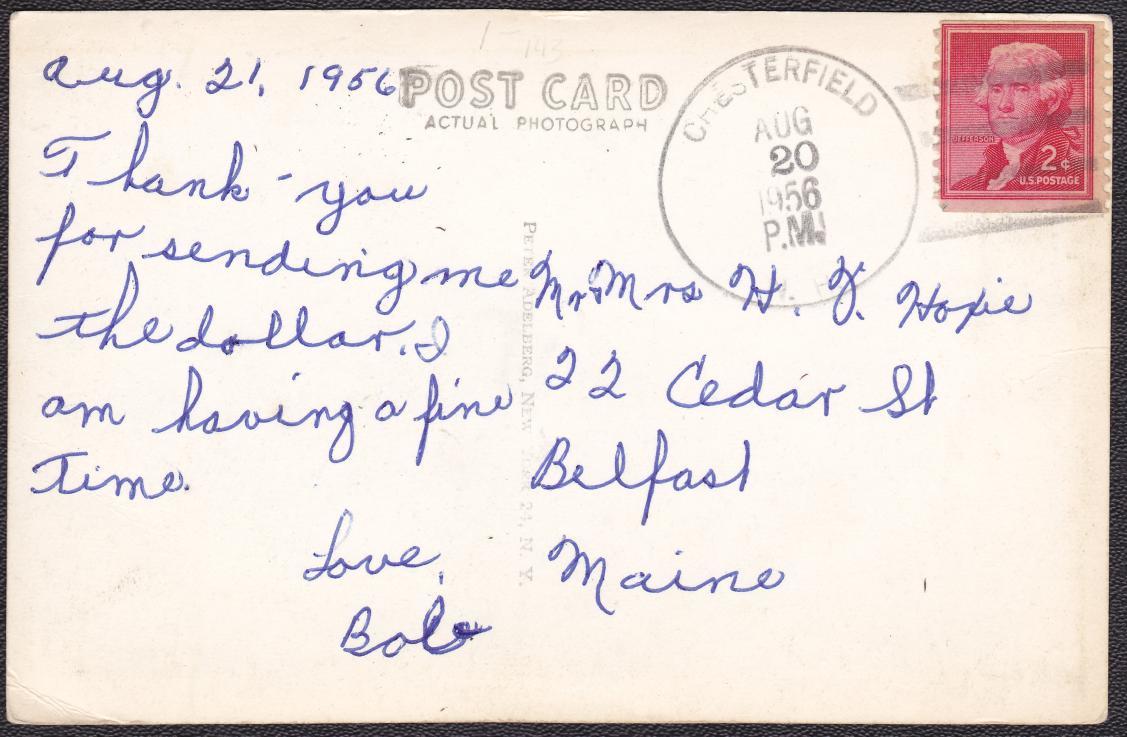 Aug. 21, 1956
POST CARD
ACTUAL PHOTOGRAPH
Thank-you
for sending me
the dollar. I
am having a fine
time.
Love,
Bob
PETER ADELBERG, NEW YORK 24, N. Y.
CHESTERFIELD
AUG
20
1956
P.M.
JEFFERSON
2¢
U.S. POSTAGE
Mr & Mrs H. F. Hoxie
22 Cedar St
Belfast
Maine